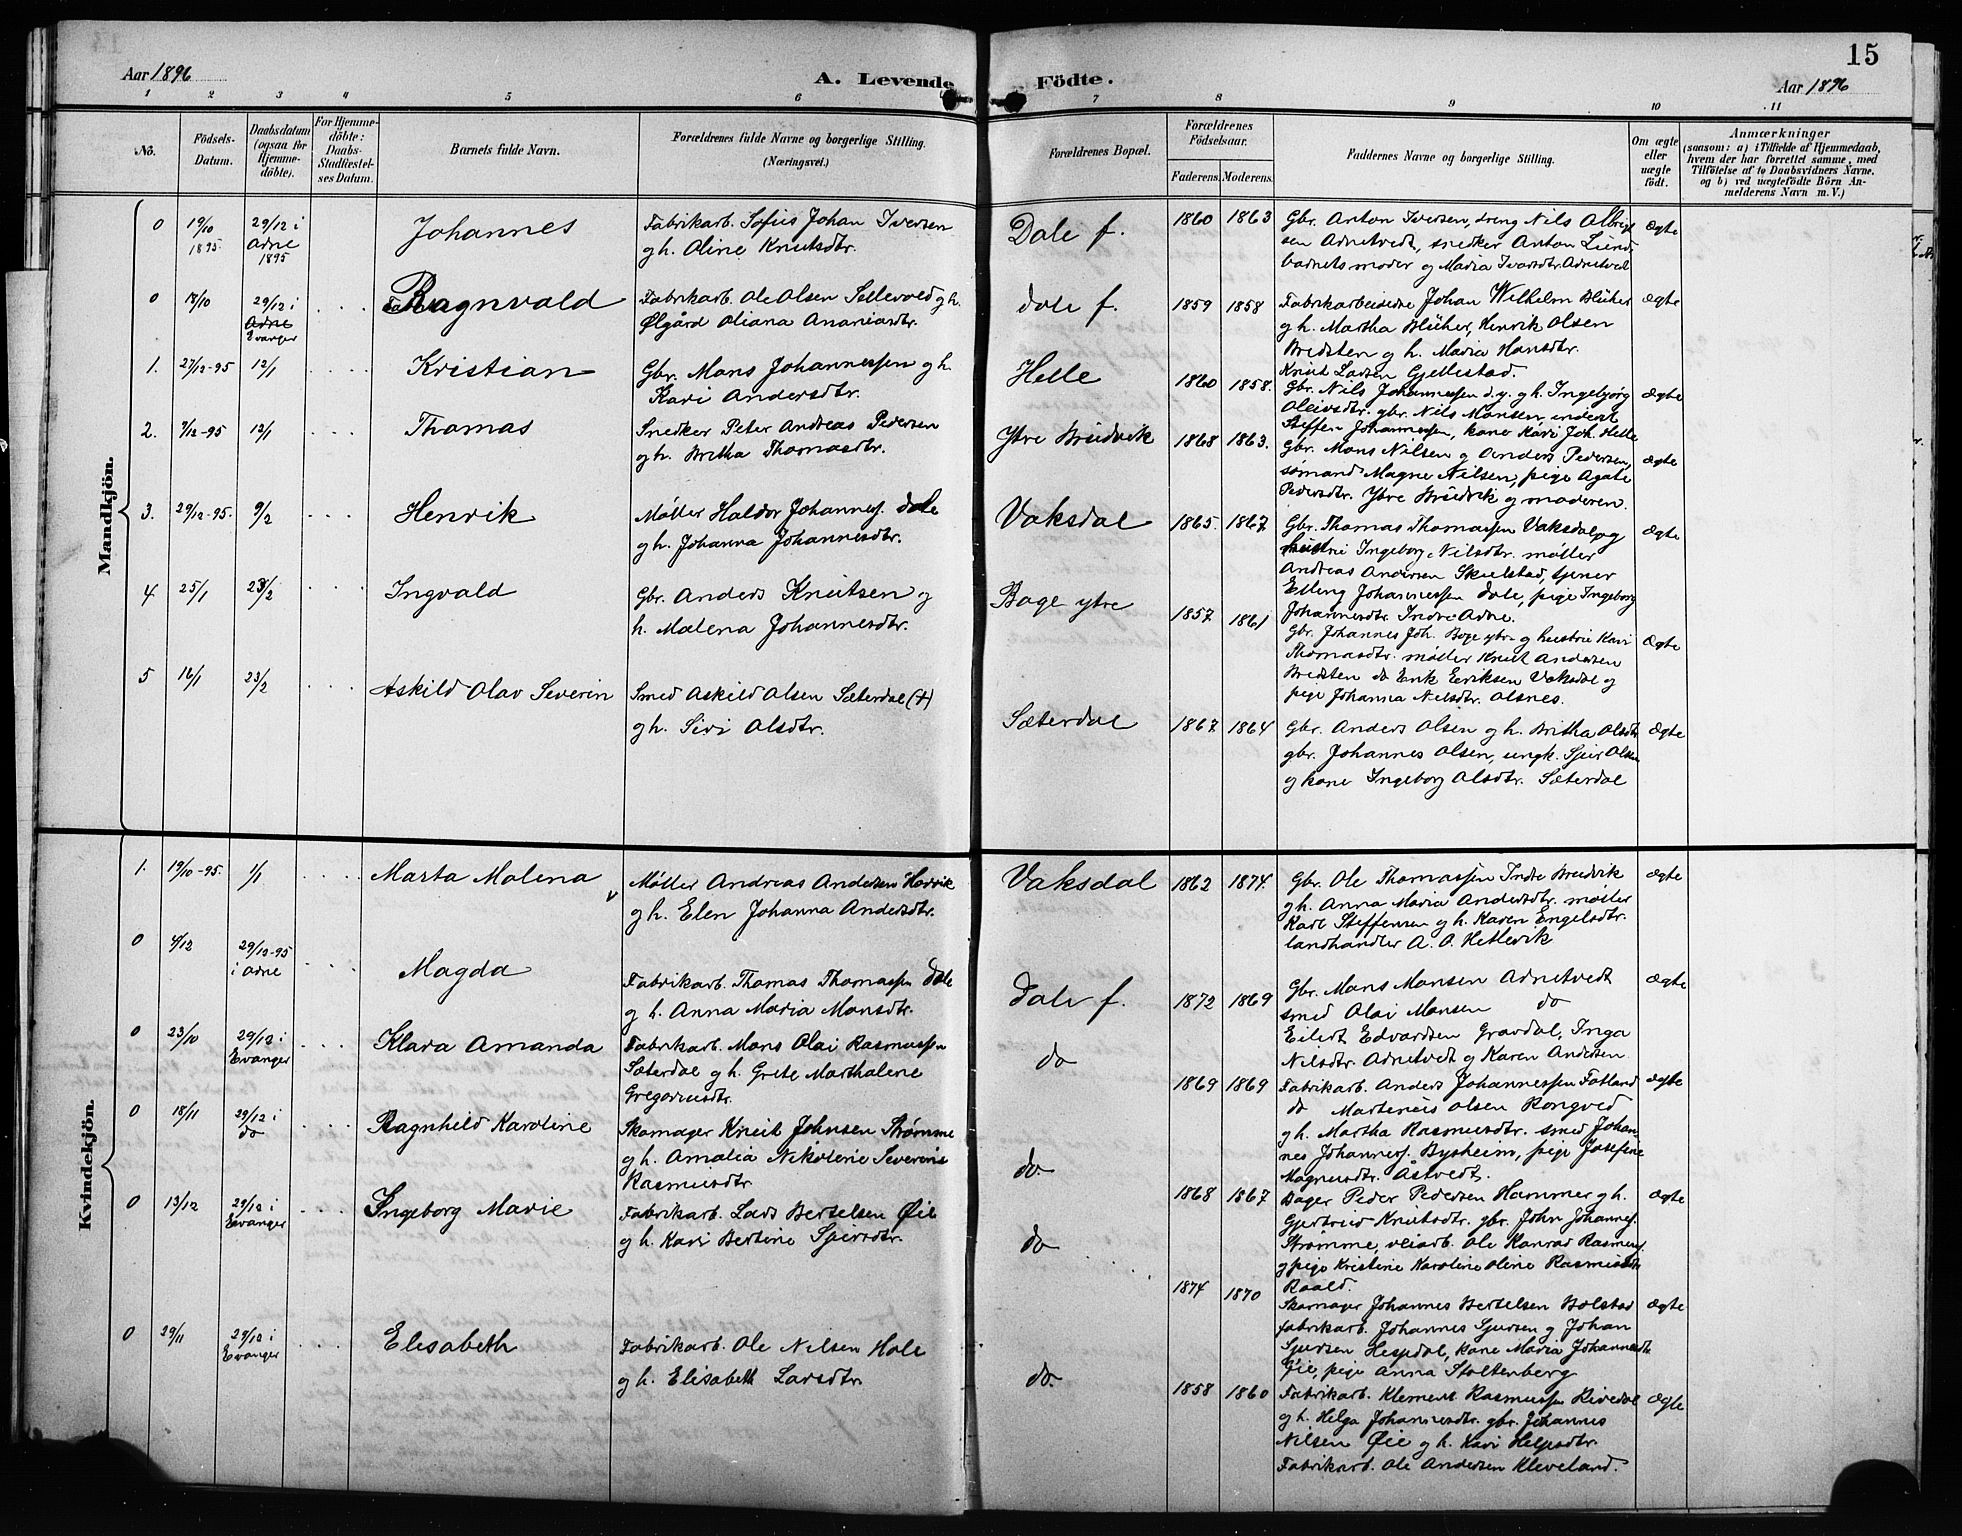 15
Aar 1896
A. Levende Födte.
Aar 1896
1 2 3 4 5 6 7 8 9 10 11
No.
Födsels-Datum.
Daabsdatum (ogsaa for Hjemmedöbte).
For Hjemmedöbte: Daabs-Stadfæstelses Datum.
Barnets fulde Navn.
Forældrenes fulde Navne og borgerlige Stilling.
(Næringsvei.)
Forældrenes Bopæl.
Forældrenes Födselsaar.
Faderens. Moderens.
Faddernes Navne og borgerlige Stilling.
Om ægte eller uægte födt.
Anmærkninger
(saasom: a) i Tilfælde af Hjemmedaab, hvem der har forrettet samme, med Tilföielse af to Daabsvidners Navne, og b) ved uægtefödte Börn Anmelderens Navn m. V.)
Mandkjön.
0 19/10 1895 29/12 i Adne 1895 Johannes
Fabrikarb. Sofus Johan Iversen
og h. Oline Knutsdtr.
Dale f. 1860 1863
Gbr. Anton Iversen, dreng Nils Albrigt
sen Adnetvedt, snedker Anton Lund
barnets moder og Maria Ivarsdtr. Adnetvedt
ægte
0 18/10 29/12 i Evanger Ragnvald
Fabrikarb. Ole Olsen Sellevold og h.
Ølgård Oliana Ananiasdtr.
Dale f. 1859 1858
Fabrikarbeidere Johan Wilhelm Blüher
og h. Martha Blüher, Henrik Olsen
Bredsten og h. Maria Hansdtr.
Knut Larsen Gjellestad.
ægte
1. 27/12-95 12/1 Kristian
Gbr. Mons Johannessen og h.
Kari Andersdtr.
Helle 1860 1858.
Gbr. Nils Johannessen d.y. og h. Ingebjørg
Oleivsdtr. gbr. Nils Monsen, enkem.
Steffen Johannessen, kone Kari Joh. Helle
ægte
2. 7/12-95 12/1 Thomas
Snedker Peter Andreas Pedersen
og h. Britha Thomasdtr.
Ytre Bruvik 1868 1863.
Gbr. Mons Nilsen og Anders Pedersen,
sømand Magne Nilsen, pige Agate
Pedersdtr. Ytre Bruvik og moderen.
ægte
3. 29/12-95. 9/2 Henrik
Møller Haldor Johannes. Dale
og h. Johanna Johannesdtr.
Vaksdal 1865. 1867.
Gbr. Thomas Thomassen Vaksdal og
hustru Ingeborg Nilsdtr. møller
Andreas Andersen Skulstad, tjener
Elling Johannessen Dale, pige Ingeborg
Johannesdtr. Indre Adne.
ægte
4 25/1 23/2 Ingvald
Gbr. Anders Knutsen og
h. Malena Johannesdtr.
Boge ytre 1857 1861
Gbr. Johannes Joh. Boge ytre og hustru Kari
Thomasdtr. møller Knut Andersen
Bredsten do Erik Eriksen Vaksdal og
pige Johanna Nilsdtr. Olsnes.
ægte
5 16/1 23/2 Askild Olav Severin
Smed Askild Olsen Sæterdal (†)
og h. Siri Olsdtr.
Sæterdal 1867. 1864
Gbr. Anders Olsen og h. Britha Olsdtr.
gbr. Johannes Olsen, ungk. Sjur Olsen
og kone Ingeborg Olsdtr. Sæterdal
ægte
Kvindekjön.
1. 19/10-95. 1/1 Marta Malena
Møller Andreas Andersen Hervik
og h. Elen Johanna Andersdtr.
Vaksdal 1862 1874.
Gbr. Ole Thomassen Indre Bruvik
og h. Anna Maria Andersdtr. møller
Karl Steffensen og h. Karen Engelsdtr.
landhandler A. O. Hetlevik
ægte
0 4/12 29/12-95 i Adne Magda
Fabrikarb. Thomas Thomassen Dale
og h. Anna Maria Monsdtr.
Dale f. 1872 1869
Gbr. Mons Monsen Adnetvedt
smed Olai Monsen do
Eilert Edvardsen Gravdal, Inga
Nilsdtr. Adnetvedt og Karen Andersen
ægte
0 23/10 29/12 i Evanger Klara Amanda
Fabrikarb. Mons Olai Rasmussen
Sæterdal og h. Grete Marthalene
Gregoriusdtr.
do 1869 1869
Fabrikarb. Anders Johannessen Fotland
do Martenius Olsen Rongved
og h. Martha Rasmusdtr. smed Johan-
nes Johannes. Bysheim, pige Josefine
Magnusdtr. Åstvedt.
ægte
0 18/11 29/12 i do Ragnhild Karoline
Skomager Knut Johnsen Strømme
og h. Amalia Nikoline Severine
Rasmusdtr
do. 1868 1867
Bager Peder Pedersen Hammer og h.
Gjertrud Knutsdtr. gbr. John Johannes.
Strømme, veiarb. Ole Konrad Rasmus.
og pige Kristine Karoline Oline Rasmusdtr.
Raald.
ægte
0 13/12 29/12 i Evanger Ingeborg Marie
Fabrikarb. Lars Bertelsen Øie
og h. Kari Bertine Sjursdtr.
do 1874 1870
Skomager Johannes Bertelsen Bolstad
fabrikarb. Johannes Sjursen og Johan
Sjursen Hesjedal, kone Maria Johannesdtr.
Øie, pige Anna Stoltenberg
ægte
0 29/11 29/12 i Evanger Elisabeth
Fabrikarb. Ole Nilsen Hole
og h. Elisabeth Larsdtr.
do. 1858 1860
Fabrikarb. Klement Rasmussen Rivedal
og h. Helga Johannesdtr. gbr. Johannes
Nilsen Øie og h. Kari Helgesdtr.
Fabrikarb. Ole Andersen Kleveland.
ægte